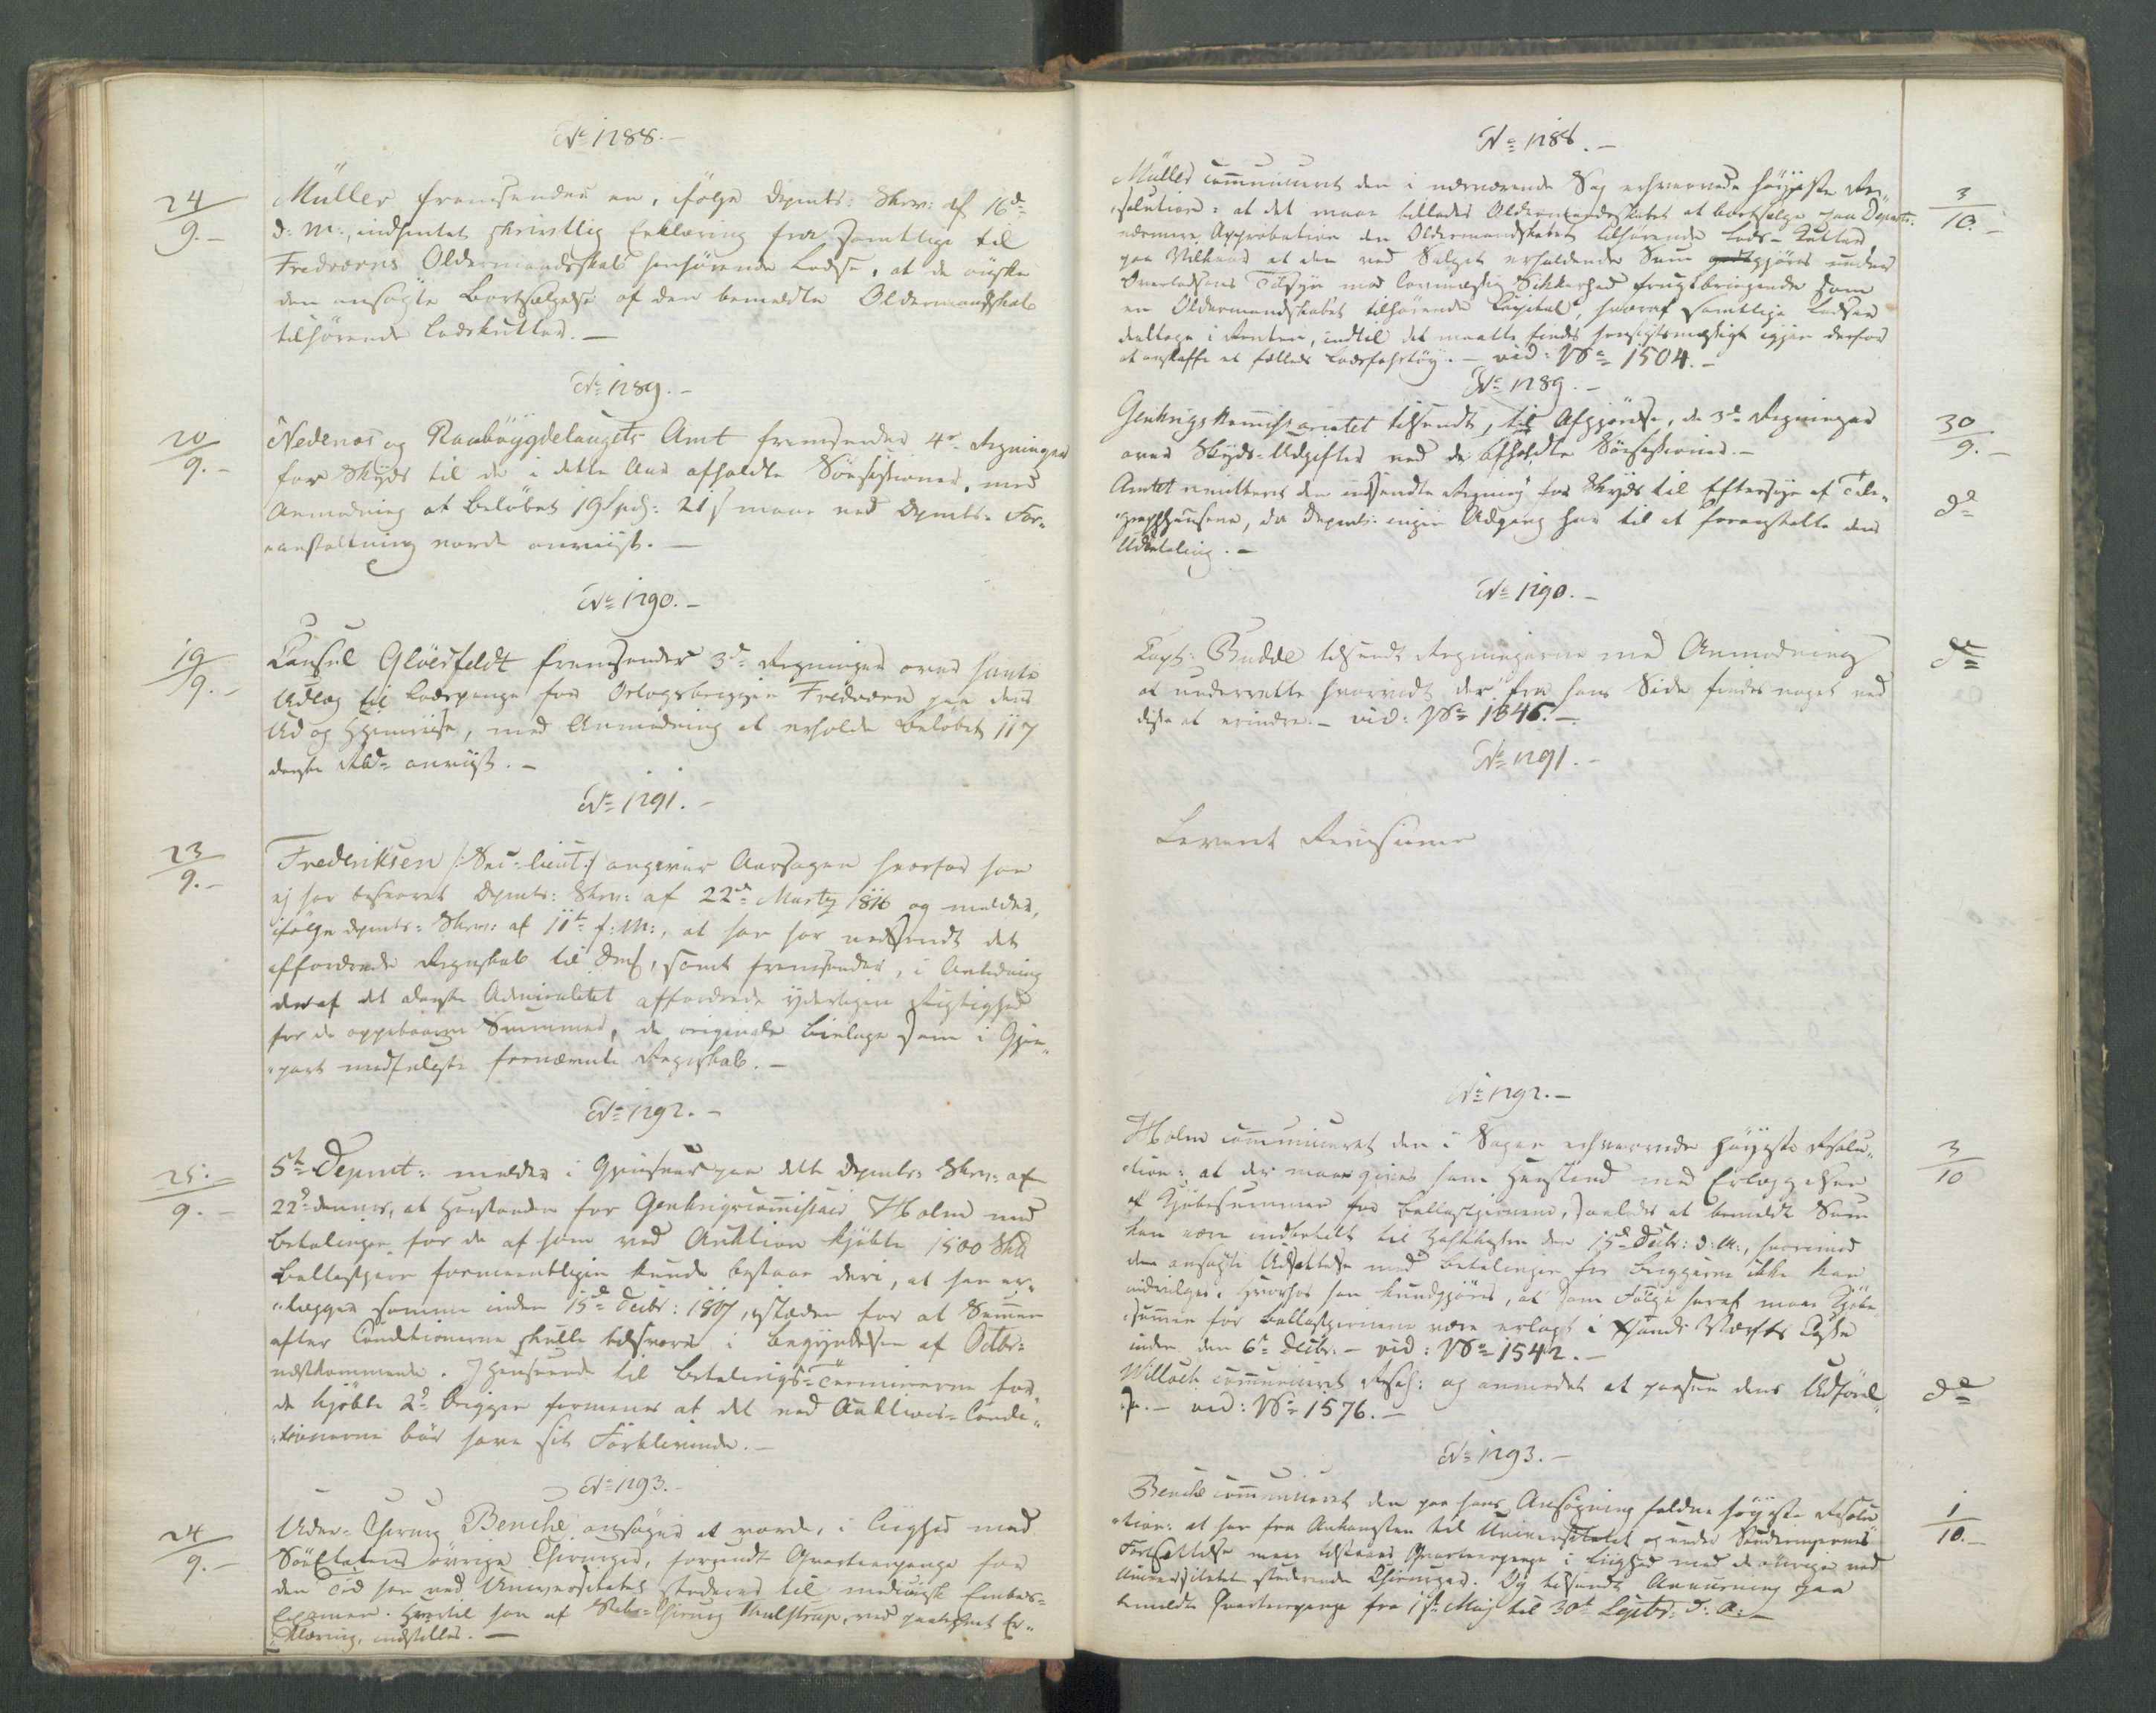 No 1288.-
24/9.-
Müller fremsender en, ifølge Depmts: Skriv: af 16de
d: M:, indhentet skriftlig Erklæring fra samtlige til
Fredværns Oldermandskab henhørende Lodse, at de ønske
den ansøgte Bortsælgelse af den bemeldte Oldermandskab
tilhørende Lodskutter.-
No 1289.-
20/9.-
Nedenæs og Raabøygdelaugets Amt fremsender 4re Regninger
for Skyds til de i dette Aar afholdte Søesessioner, med
Anmodning at Beløbet 19 Spd: 21 s maae ved Depmts: For-
anstaltning vorde anviist.-
No 1290.-
19/9.-
Consul Gløersfeldt fremsender 3de Regninger over hans
Udlæg til Lodspenge for Orlogsbriggen Fredværn paa dens
Ud og Hjemreise, med Anmodning at erholde Beløbet 117
danske Rbd anviist.-
No 1291.-
23/9.-
Frederiksen /:Sec: lieut:/ angiver Aarsagen hvorfor han
ej har besvaret Depmts: Skriv: af 22de Marty 1816 og melder,
ifølge Depmts: Skriv: af 11te f: M:, at han har nedsendt det
affordrede Regnskab til samt fremsender, i Anledning
deraf det danske Admiralitet affordrede yderligere Rigtighed
for de oppebaarne Summer, de originale Bielage som i Gjen-
part medfulgte fornævnte Regnskab.-
No 1292.-
25/9.-
5te Depmt: melder i Gjensvar paa dette Depmts: Skriv: af
22de dennes, at Henstanden for Genkrigscommissair Holm med
Betalingen for de af ham ved Auktion kjøbte 1500 Skd
Ballastjern formeentligen kunde bestaae deri, at han er-
lægger samme inden 15de Decbr: 1817, istæden for at Summen
efter Conditionerne skulle tilsvares i Begyndelsen af Octbr:
næstkommende. I Henseende til Betalings-Terminerne for
de kjøbte 2de Brigger formenes at det ved Auktions-Condi-
tionerne bør have sit Forblivende.-
No 1293.-
24/9.-
Under-Chirurg Benche ansøger at vorde, i Liighed med
SøeEtatens øvrige Chirurger, forundt Qvarteerpenge for
den Tid han ved Universitetet studerer til medicinsk Embeds-
Examen. Hvortil han af Stabs-Chirurg Thulstrup, ved paategnet Er-
klæring, indstilles.-
No 1288.-
3/10.-
Müller communiceret den i nærværende Sag erhvervede høyeste Re-
solution: at det maae tillades Oldermandskabet at bortsælge paa Depmts:
nærmere Approbation den Oldermandskabet tilhørende Lods-Kutter
paa Vilkaar at den ved Salget erholdende Sum giøres under
Overlodsens Tilsyn med lovmæssig Sikkerhed frugtbringende som
en Oldermandskabet tilhørende Capital, hvoraf samtlige Lodser
deeltage i Renten, indtil det maatte findes hensigtsmæssigt igjen derfor
at anskaffe et fælles Lodsfartøy.- vid: No 1504.-
No 1289.-
30/9.-
Genkrigskommissariatet tilsendt, til Afgjørelse, de 3de Regninger
over Skyds-Udgifter ved de afholdte Søesessioner.-
do
Amtet remitteret den indsendte Regning for Skyds til Eftersyn af Tele-
graphhusene, da Depmts: ingen Adgang har til at foranstalte dens
Udbetaling.-
No 1290.-
do
Capt: Budde tilsendt Regningerne med Anmodning
at underrette hvorvidt der fra hans Side findes noget ved
disse at erindre.- vid: No 1346.-
No 1291.-
Leveret Revisionen
No 1292.-
3/10
Holm communiceret den i Sagen erhvervede høyeste Resolu-
tion: at der maae gives ham Henstand med Erlæggelsen
af Kjøbesummen for Ballastjernene, saaledes at bemeldte Sum
kan være indbetalt til den 15de Decbr: d: A:, hvorimod
den ansøgte Udsættelse med Betalingen for Briggerne ikke kan
indvilges. Hvorhos han kundgjøres, at som Følge heraf maae Kjøbe-
summen for Ballastjernene være erlagt i Xsands Værfts Casse
inden den 6te Decbr.- vid: No 1542.-
do
Willoch communiceret Resol: og anmodet at paasee dens Udførel-
se.- vid: No 1576.-
No 1293.-
1/10.-
Benche communiceret den paa hans Ansøgning faldne høyeste Resolu-
tion: at han fra Ankomsten til Universitetet og under Studeringernes
Fortsættelse maae tilstaaes Qvarteerpenge i Liighed med de øvrige ved
Universitetet studerende Chirurger. Og tilsendt Anviisning paa
bemeldte Qvarteerpenge fra 1ste Maj til 30te Septbr: d: A:-